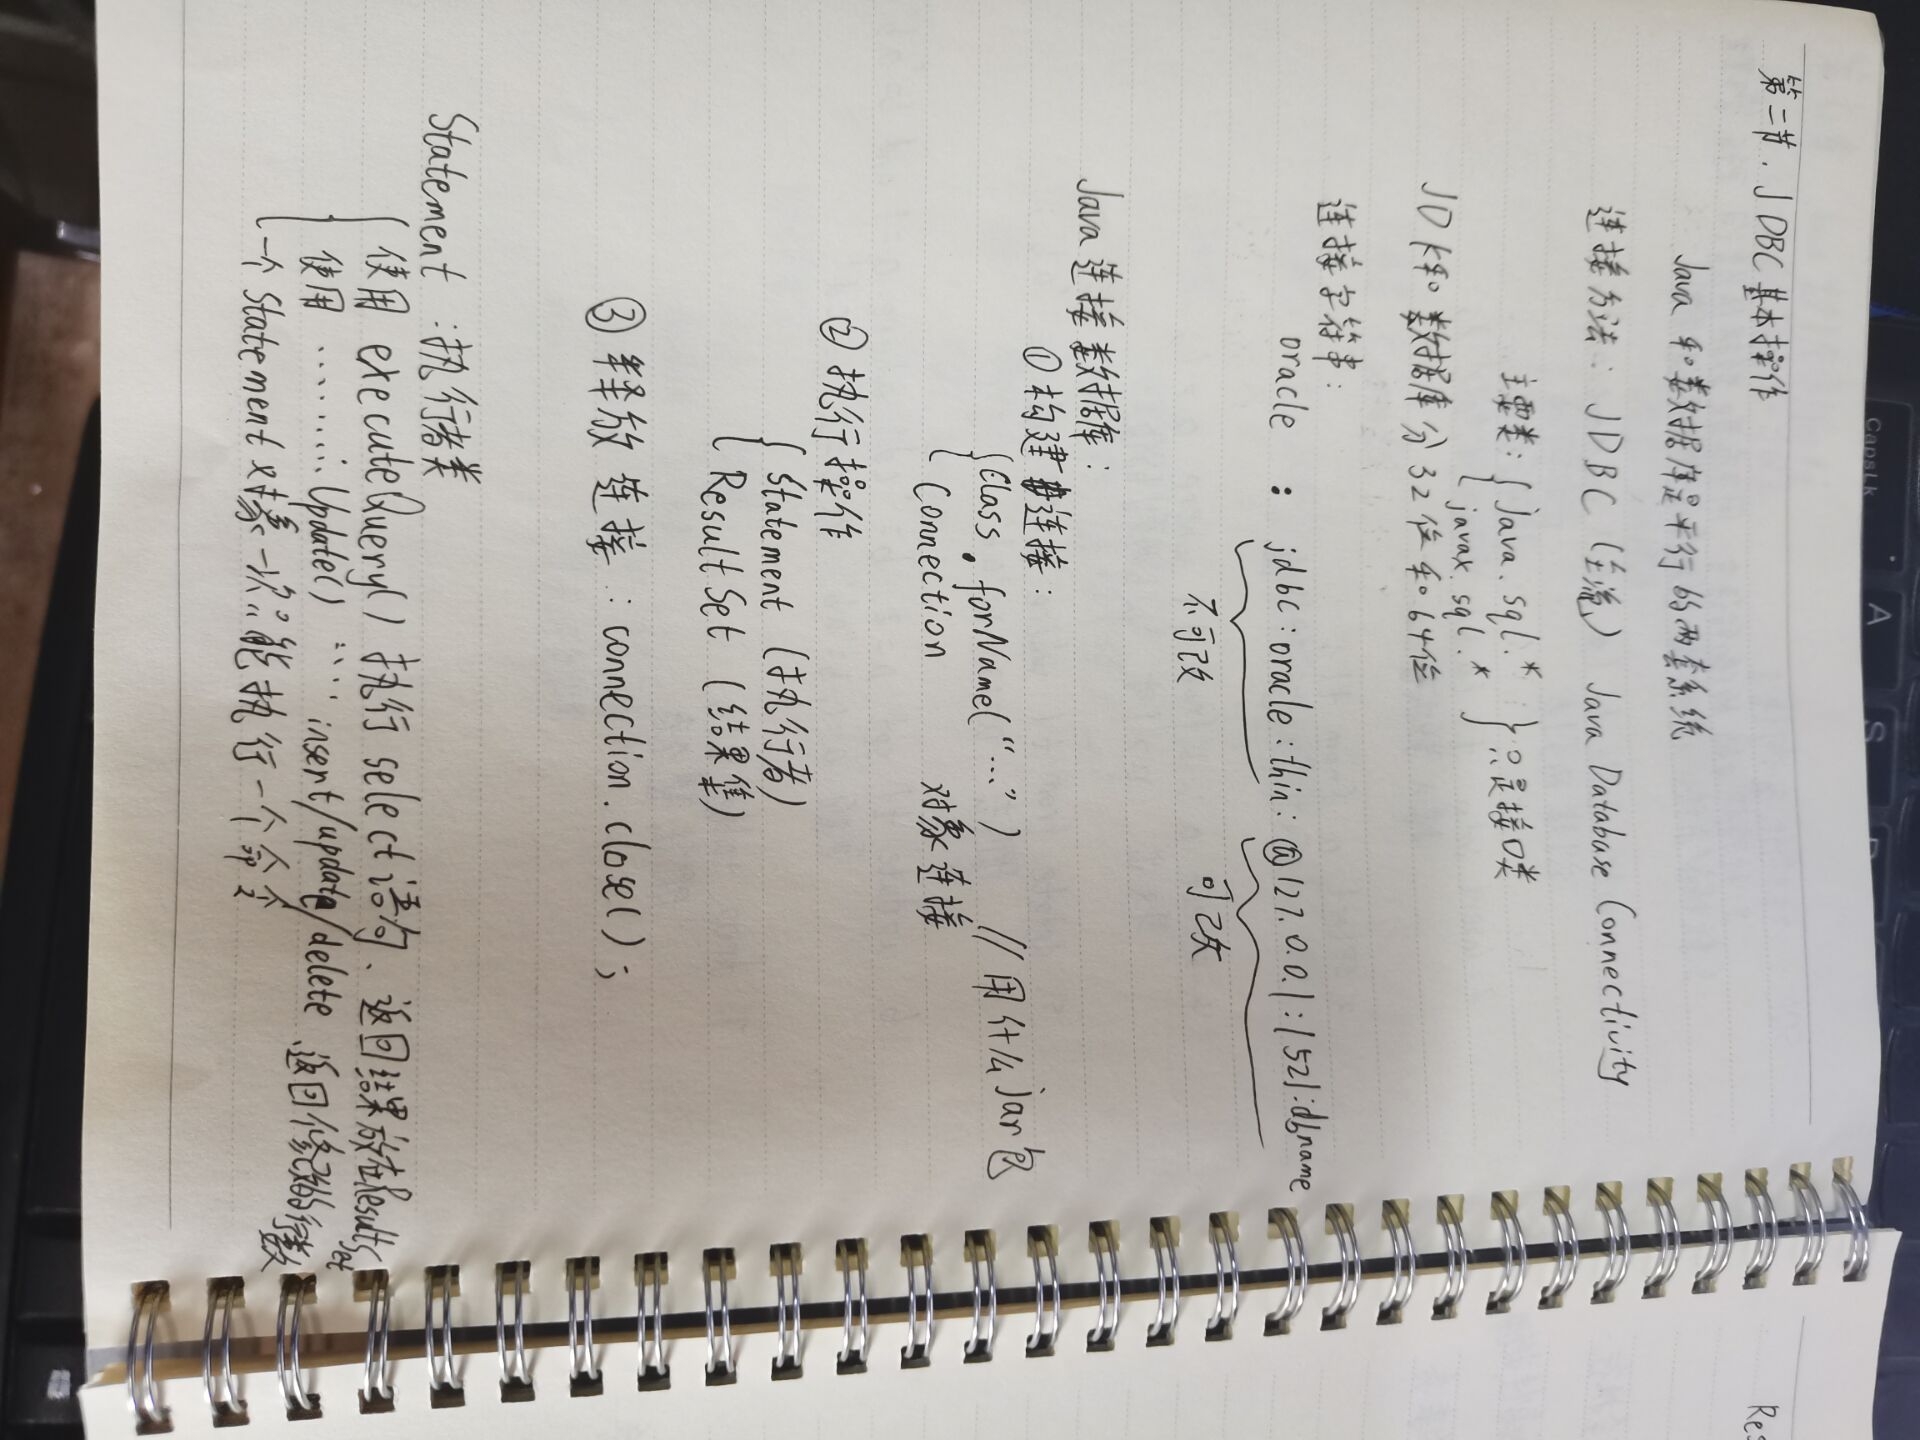 第二节. JDBC基本操作
Java 和数据库是平行的两套系统
连接方法: JDBC (主流) Java Database Connectivity
主要类: { java.sql.* } 只是接口类
{ javax.sql.* }
JDK和数据库分32位和64位
连接字符串:
oracle : jdbc:oracle:thin:@127.0.0.1:1521:dbname
不可改 可改
Java连接数据库:
①构建连接:
{ Class.forName("...") //用什么jar包
{ Connection 对象连接
②执行操作
{ Statement (执行者)
{ ResultSet (结果集)
③释放连接: connection.close();
Statement : 执行者类
{ 使用 executeQuery() 执行 select 语句. 返回结果放在ResultSet
使用 ........ Update() .... insert/update/delete 返回修改的行数
一个Statement对象一次只能执行一个命令
CapsLk
A
S
Res